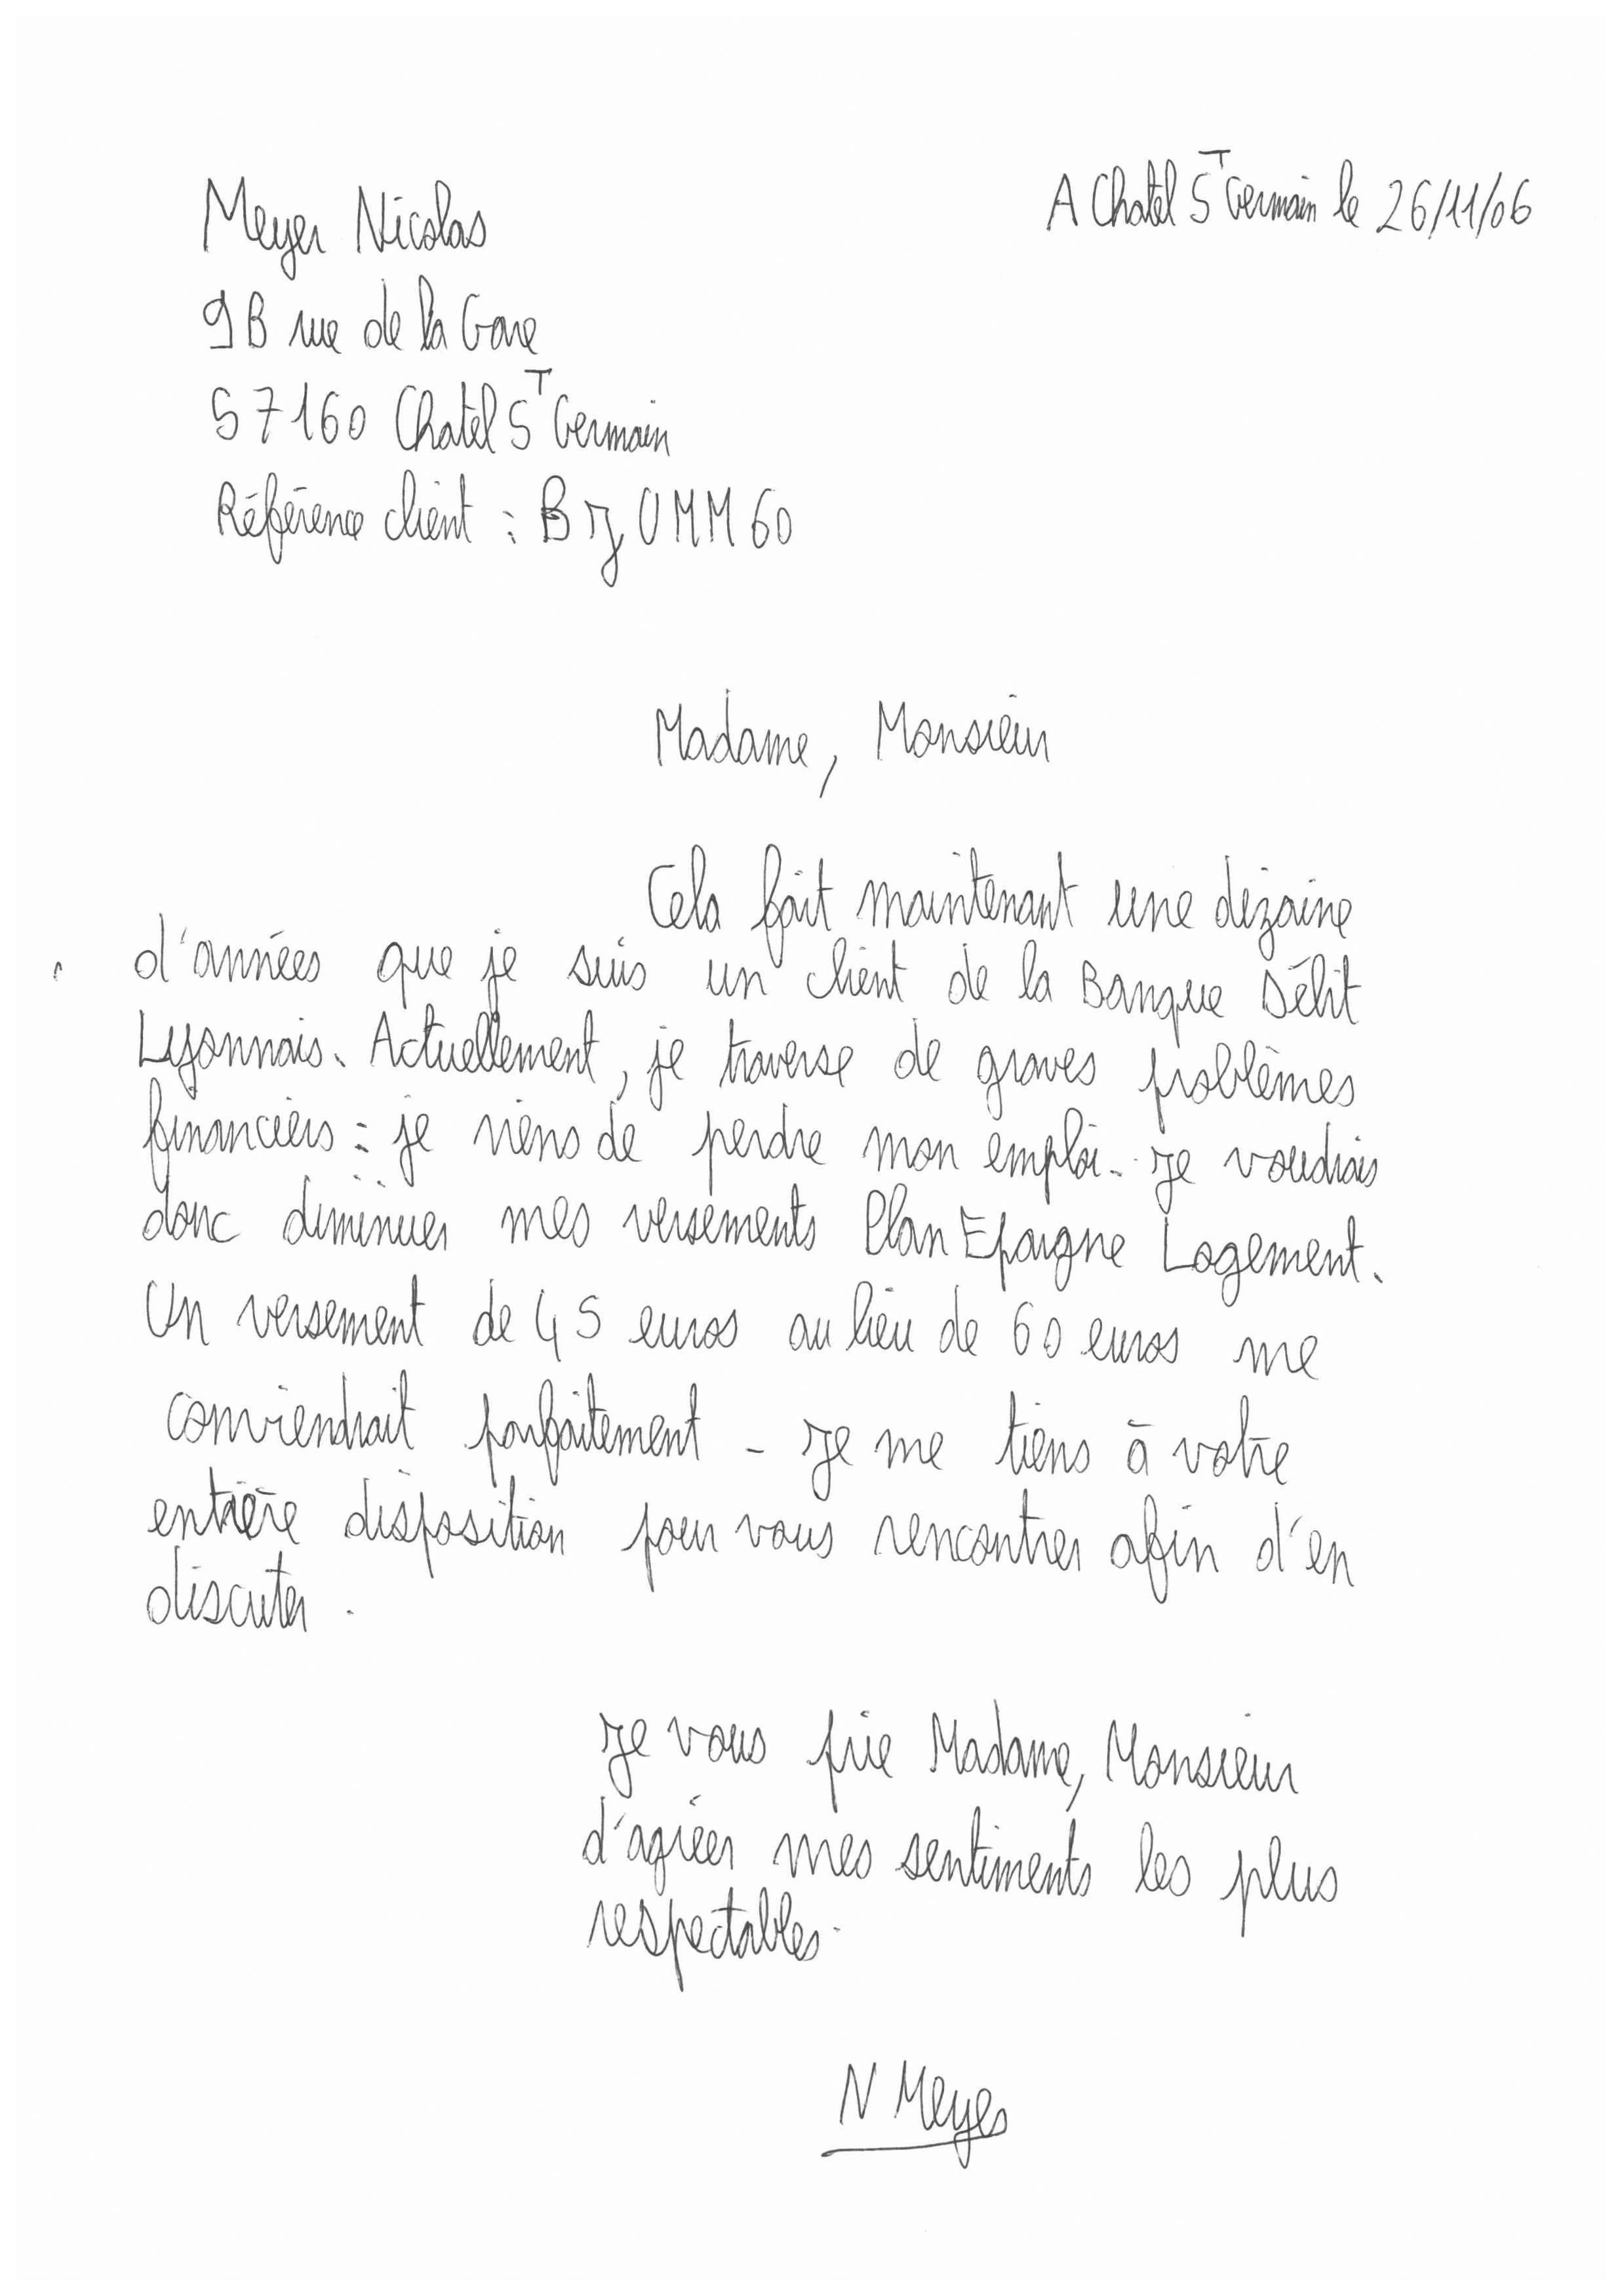 Meyer Nicolas
A Chatel S^T Germain le 26/11/06
9B rue de la Gare
57160 Chatel S^T Germain
Référence client : BJUMM60
Madame, Monsieur
Cela fait maintenant une dizaine
d'années que je suis un client de la Banque Délit
Lyonnais. Actuellement, je traverse de graves problèmes
financiers : je viens de perdre mon emploi. Je voudrais
donc diminuer mes versements Plan Epargne Logement.
Un versement de 45 euros au lieu de 60 euros me
conviendrait parfaitement - Je me tiens à votre
entière disposition pour vous rencontrer afin d'en
discuter.
Je vous prie Madame, Monsieur
d'agréer mes sentiments les plus
respectables.
N Meyer